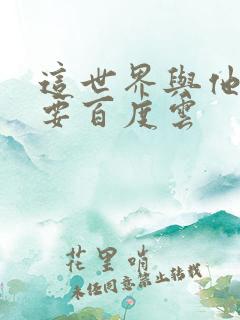 這世界與他
要百度雲
花里哨
未经同意禁止转载